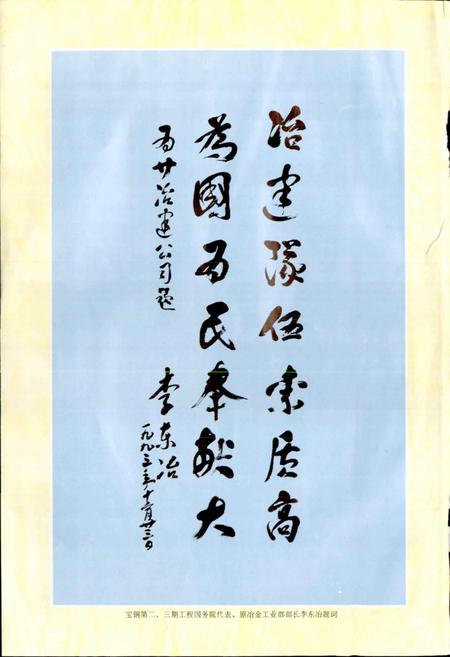 冶建隊伍素质高
為國为民奉献大
为廿冶建公司题
李东冶
一九九三年十二月廿三日
宝钢第二、三期工程国务院代表、原冶金工业部部长李东冶题词